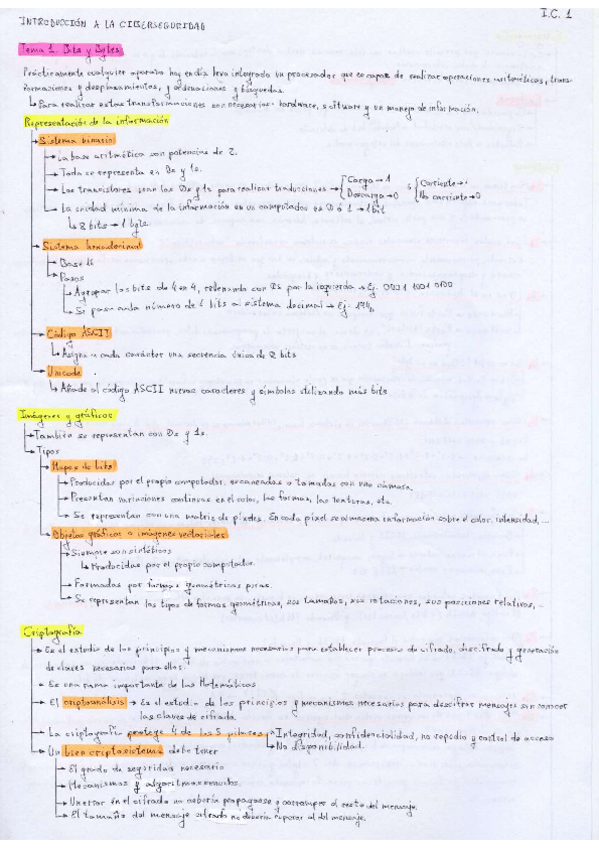 I.C. 1
INTRODUCCIÓN A LA CIBERSEGURIDAD
Tema 1. Bits y Bytes
Prácticamente cualquier aparato hoy en día lleva integrado un procesador que es capaz de realizar operaciones aritméticas, trans-
formaciones y desplazamientos, y ordenaciones y búsquedas.
Para realizar estas transformaciones son necesarios hardware, software y un manejo de información.
Representación de la información
Sistema binario
La base aritmética son potencias de 2.
Todo se representa en 0s y 1s.
Los transistores usan los 0s y 1s para realizar traducciones → Carga → 1 ó Corriente → 1
Descarga → 0 No corriente → 0
La unidad mínima de la información en un computador es 0 ó 1 → 1 bit
8 bits → 1 byte.
Sistema hexadecimal
Base 16
Pasos
Agrupar los bits de 4 en 4, rellenando con 0s por la izquierda → Ej. 0001 1001 0100
Se pasa cada número de 4 bits a sistema decimal → Ej.
Código ASCII
Asigna a cada carácter una secuencia única de 8 bits
Unicode
Añade al código ASCII nuevos caracteres y símbolos utilizando más bits
Imágenes y gráficos
También se representan con 0s y 1s.
Tipos
Mapas de bits
Producidas por el propio computador, escaneadas o tomadas con una cámara.
Presentan variaciones continuas en el color, las formas, las texturas, etc.
Se representan con una matriz de píxeles. En cada pixel se almacena información sobre el color, intensidad, ...
Objetos gráficos o imágenes vectoriales
Siempre son sintéticos
Producidas por el propio computador.
Formadas por formas geométricas puras.
Se representan los tipos de formas geométricas, sus tamaños, sus rotaciones, sus posiciones relativas, ..
Criptografía
Es el estudio de los principios y mecanismos necesarios para establecer procesos de cifrado, descifrado y generación
de claves necesarias para ellos.
Es una rama importante de las Matemáticas
El criptoanálisis → Es el estudio de los principios y mecanismos necesarios para descifrar mensajes sin conocer
las claves de cifrado.
La criptografía protege 4 de los 5 pilares → Integridad, confidencialidad, no repudio y control de acceso
No disponibilidad.
Un buen criptosistema debe tener
El grado de seguridad necesario
Mecanismos y algoritmos sencillos.
Un error en el cifrado no debería propagarse y corromper el resto del mensaje.
El tamaño del mensaje cifrado no debería superar al del mensaje.